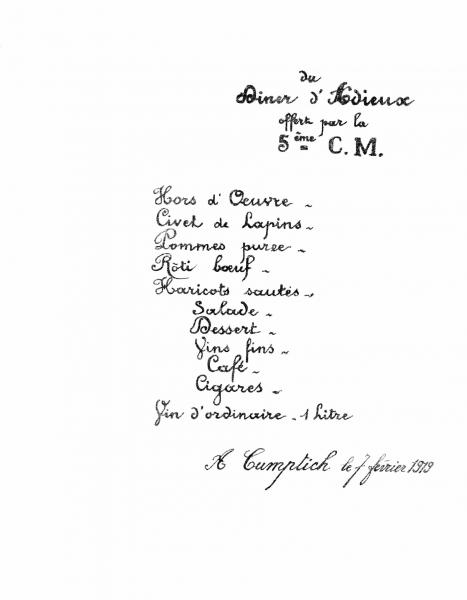 du
Diner d'Adieux
offert par la
5ème C. M.
Hors d'Oeuvre -
Civet de Lapins -
Pommes purée -
Rôti bœuf -
Haricots sautés -
Salade -
Dessert -
Vins fins -
Café -
Cigares -
Vin d'ordinaire - 1 litre
A Cumptich le 7 février 1919